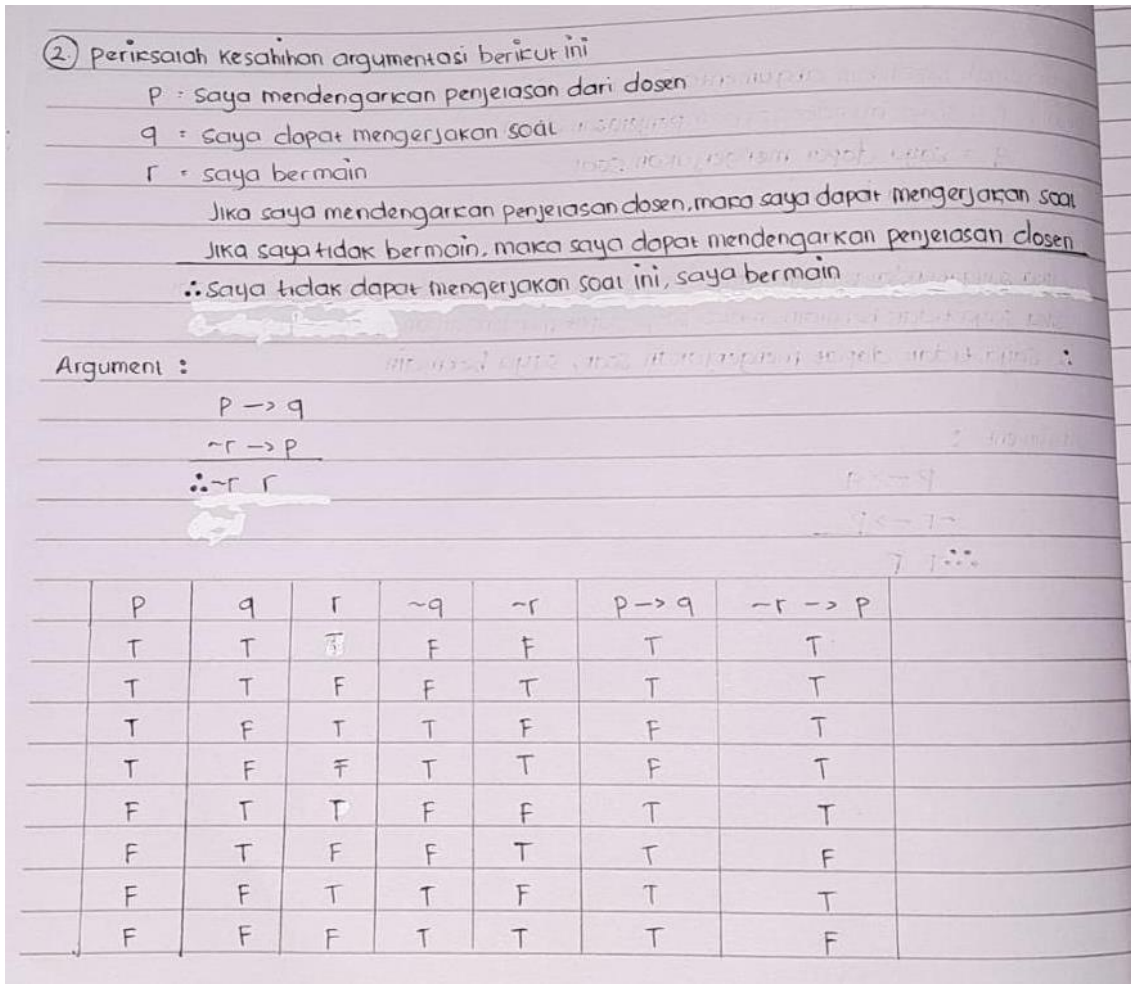 2. Periksalah kesahihan argumentasi berikut ini
P : saya mendengarkan penjelasan dari dosen
q : saya dapat mengerjakan soal
r : saya bermain
Jika saya mendengarkan penjelasan dosen, maka saya dapat mengerjakan soal
Jika saya tidak bermain, maka saya dapat mendengarkan penjelasan dosen
∴ Saya tidak dapat mengerjakan soal ini, saya bermain
Argument :
P → q
~r → P
∴ ~r r
P q r ~q ~r P → q ~r → P
T T T F F T T
T T F F T T T
T F T T F F T
T F F T T F T
F T T F F T T
F T F F T T F
F F T T F T T
F F F T T T F